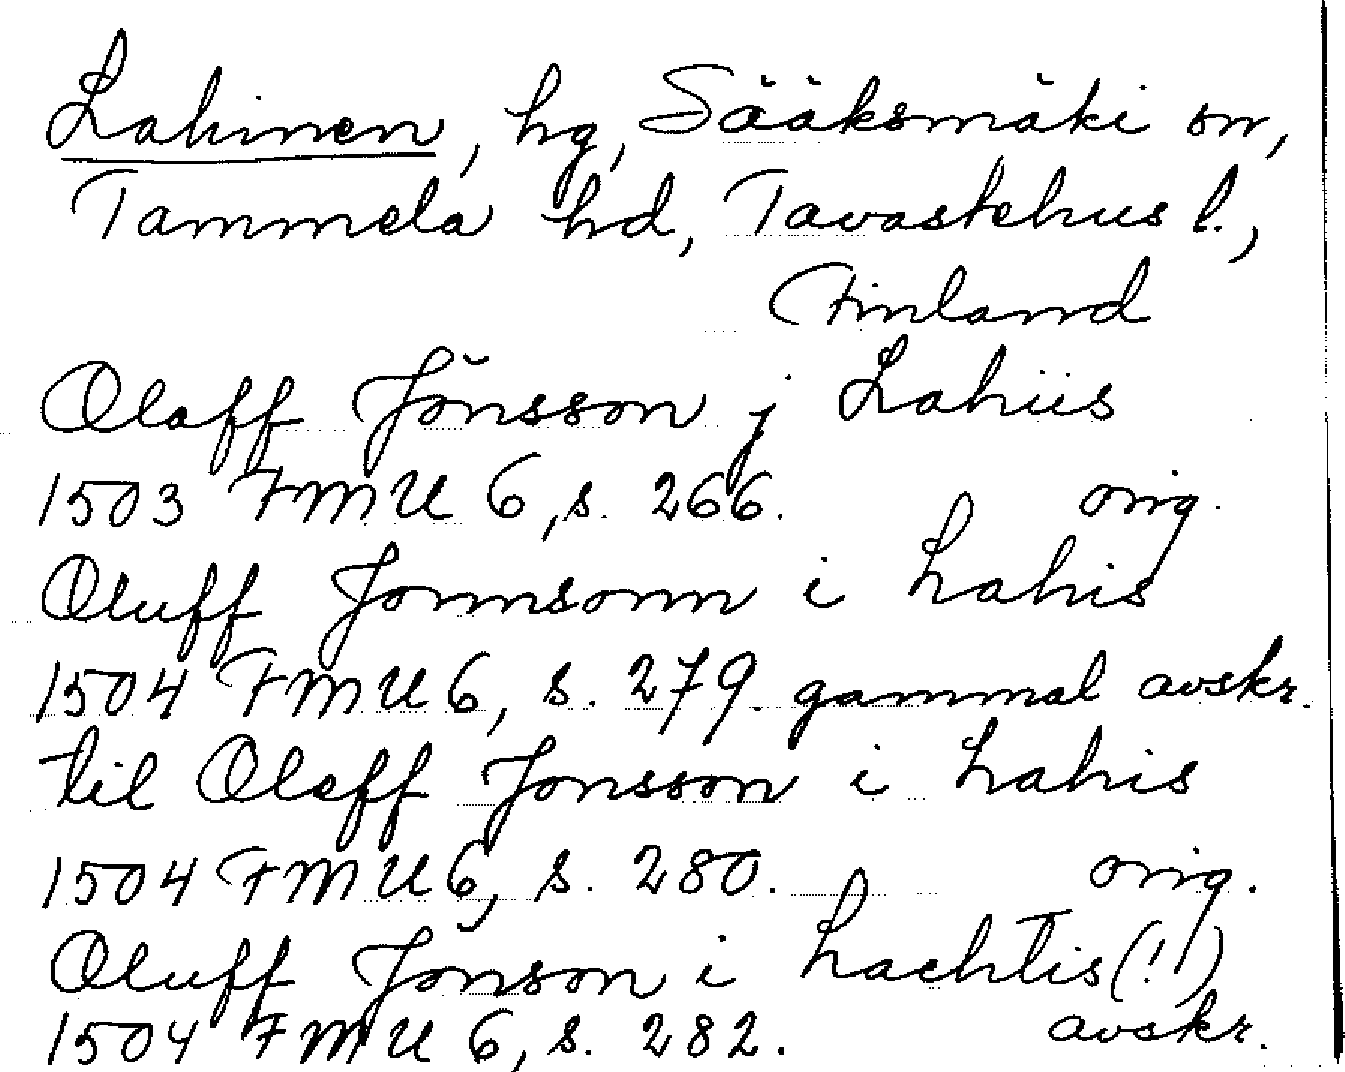 Lahinen, hg, Sääksmäki sn,
Tammela hd, Tavastehus l.,
Finland
Olaff Jönsson j Lahiis
1503 FMU 6, s. 266. orig.
Oluff Jonnsonn i Lahis
1504 FMU 6, s. 279. gammal avskr.
til Oleff Jonsson i Lahis
1504 FMU 6, s. 280. orig.
Oluff Jonson i Lachtis (!)
1504 FMU 6, s. 282. avskr.